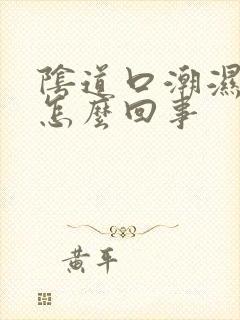 陰道口潮濕
怎麼回事
黃平